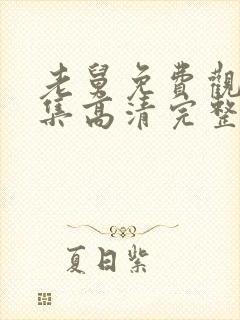 老舅免費觀
集高清完整
夏日紫